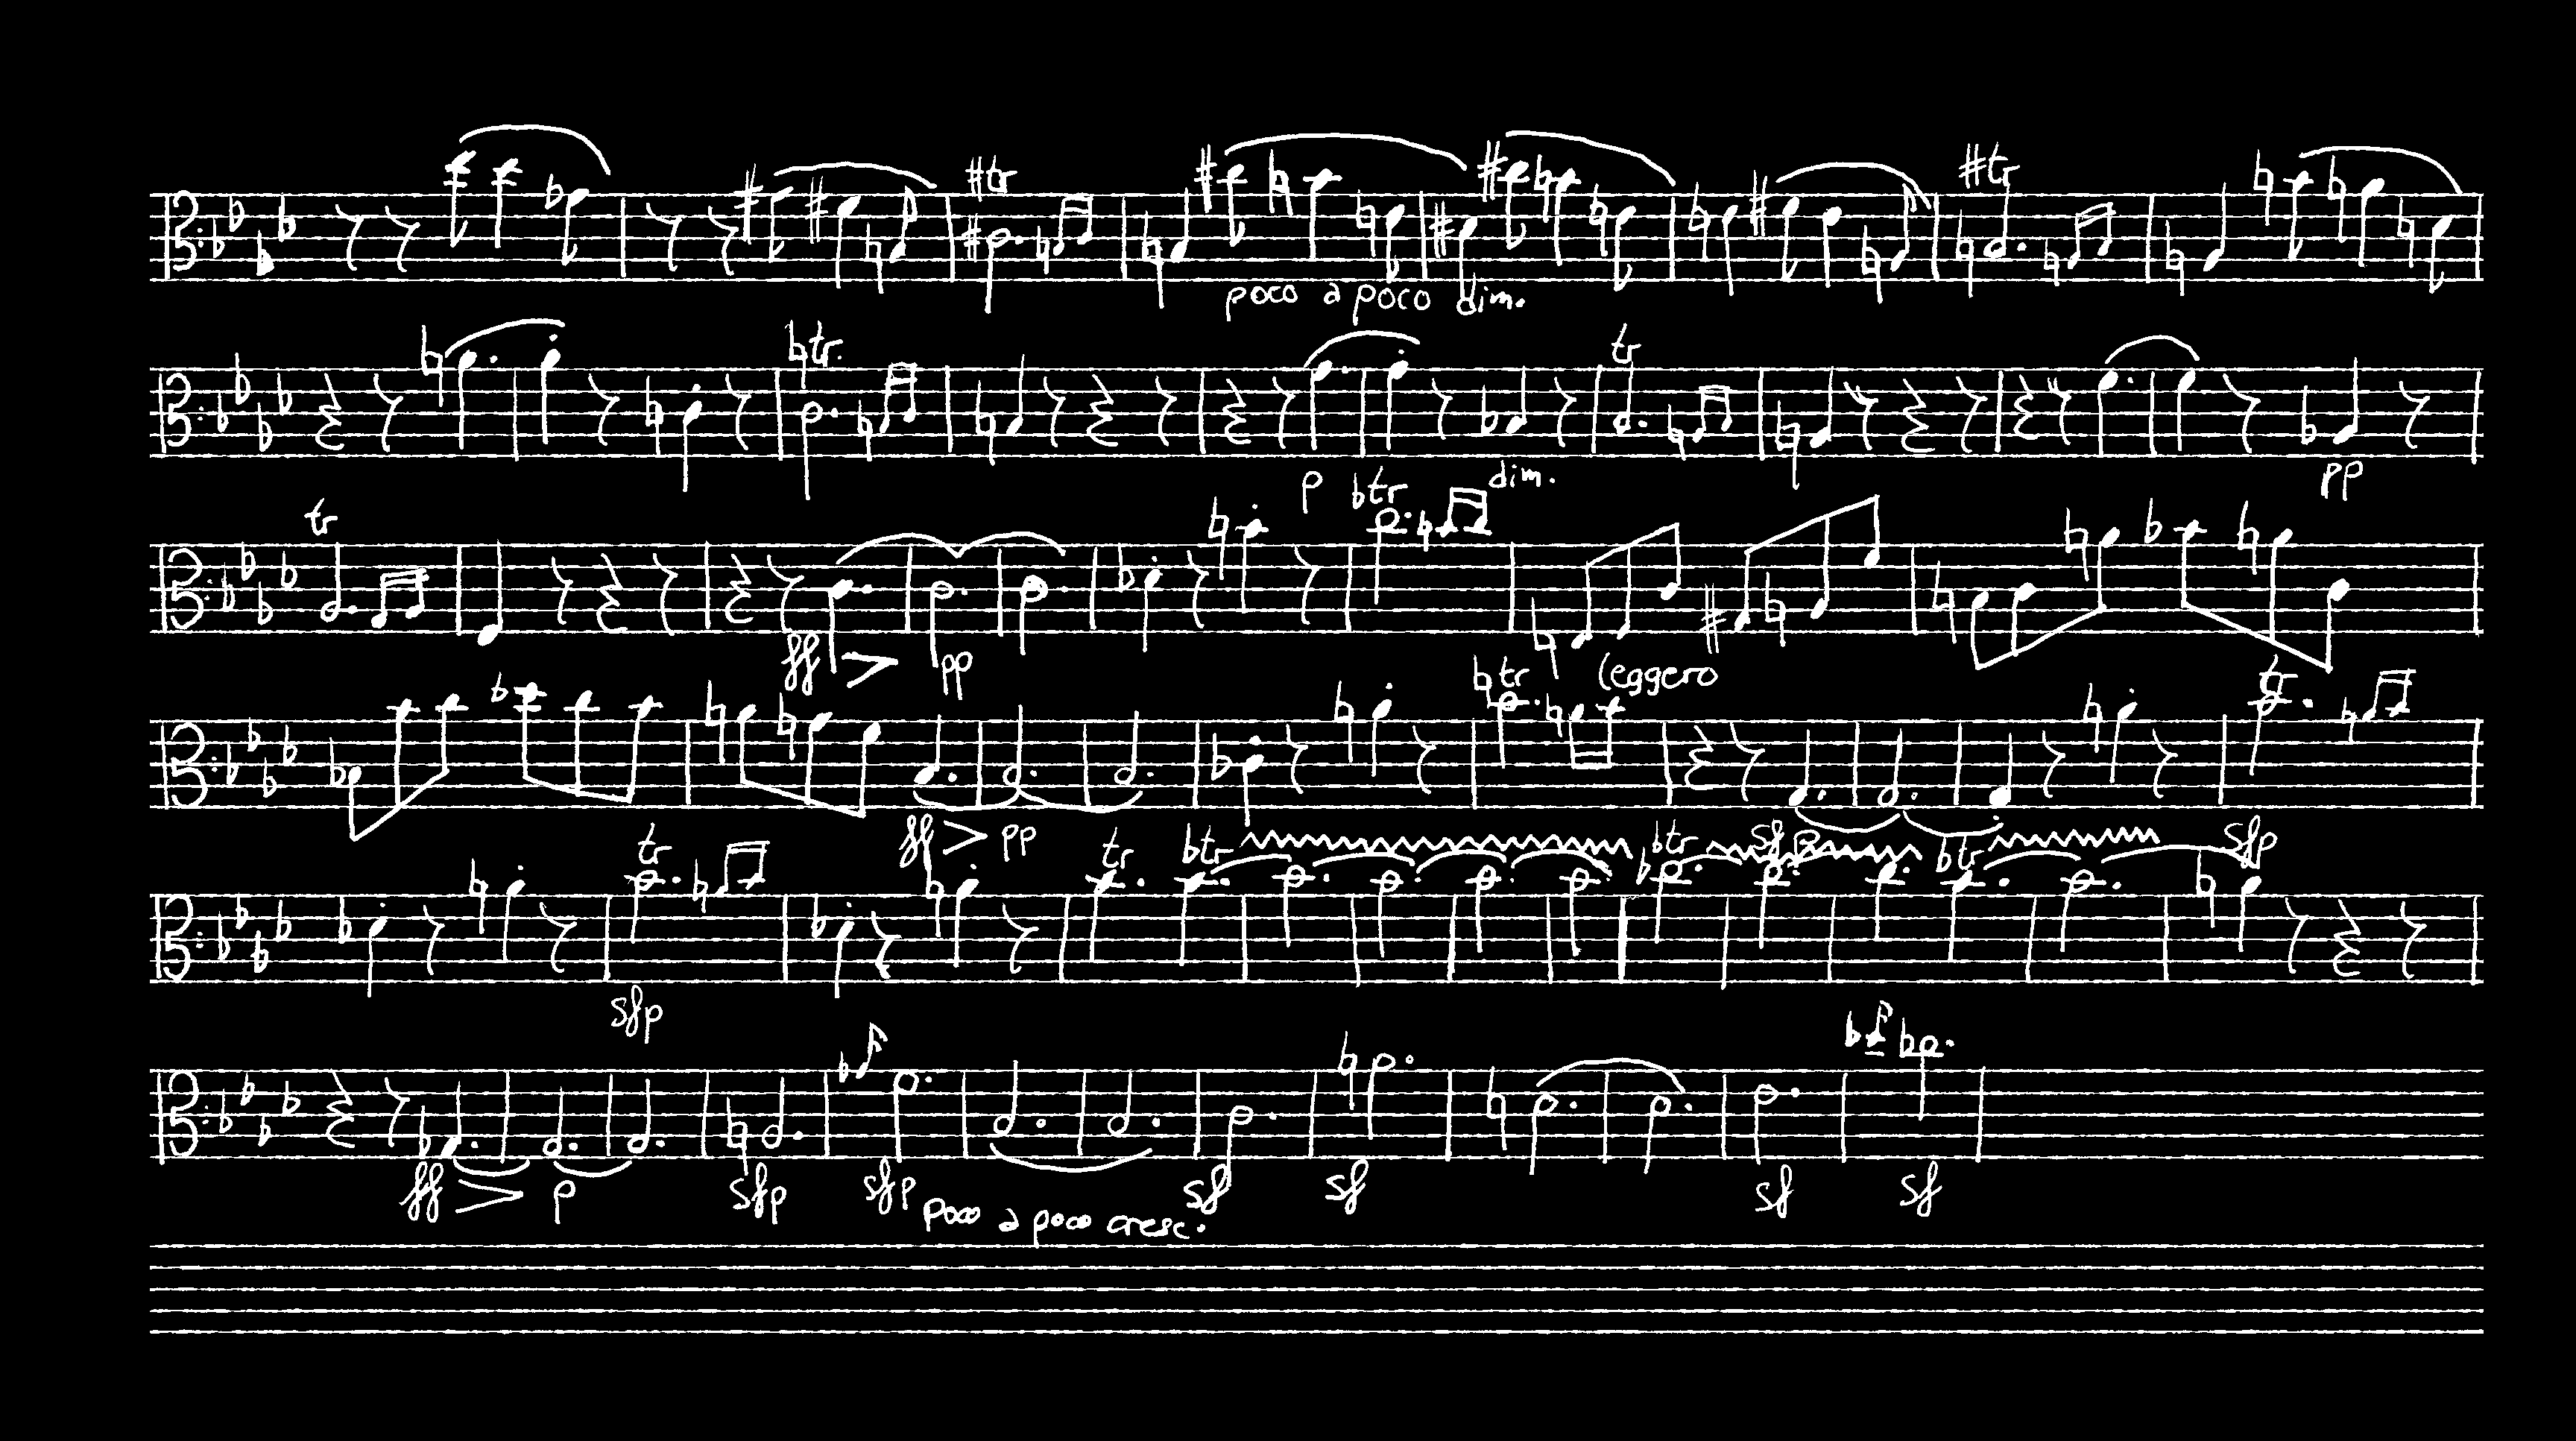 tr tr
poco a poco dim.
tr. tr
p dim. pp
tr tr
ff pp leggero
tr tr
ff pp sfp sfp
tr tr tr tr tr
sfp
ff p sfp sfp poco a poco cresc. sf sf sf sf